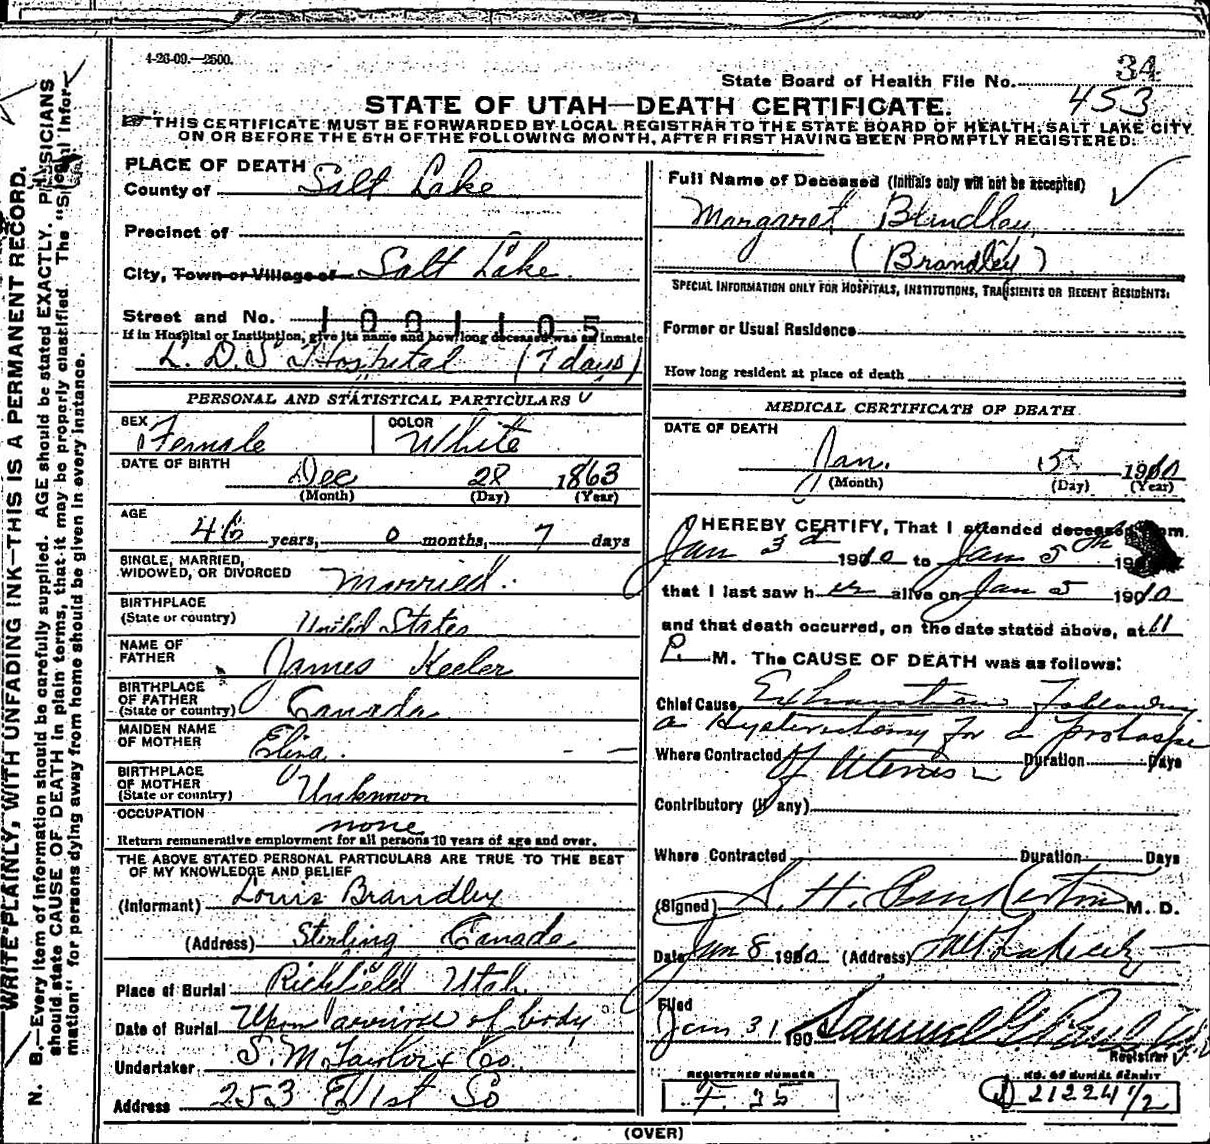 4-26-09.—2500.
State Board of Health File No. 34
453
STATE OF UTAH—DEATH CERTIFICATE.
THIS CERTIFICATE MUST BE FORWARDED BY LOCAL REGISTRAR TO THE STATE BOARD OF HEALTH, SALT LAKE CITY
ON OR BEFORE THE 5TH OF THE FOLLOWING MONTH, AFTER FIRST HAVING BEEN PROMPTLY REGISTERED.
WRITE PLAINLY, WITH UNFADING INK—THIS IS A PERMANENT RECORD.
N. B.—Every item of information should be carefully supplied. AGE should be stated EXACTLY. PHYSICIANS
should state CAUSE OF DEATH in plain terms, that it may be properly classified. The "Special Infor-
mation" for persons dying away from home should be given in every instance.
PLACE OF DEATH
County of Salt Lake
Precinct of
City, Town or Village of Salt Lake
Street and No. 1001105
If in Hospital or Institution, give its name and how long deceased was an inmate
L. D. S. Hospital (7 days)
PERSONAL AND STATISTICAL PARTICULARS
SEX Female
COLOR White
DATE OF BIRTH Dec 28 1863
(Month) (Day) (Year)
AGE
46 years, 0 months, 7 days
SINGLE, MARRIED,
WIDOWED, OR DIVORCED Married.
BIRTHPLACE
(State or country) United States
NAME OF
FATHER James Keeler
BIRTHPLACE
OF FATHER
(State or country) Canada
MAIDEN NAME
OF MOTHER Eliza. — —
BIRTHPLACE
OF MOTHER
(State or country) Unknown
OCCUPATION none
Return remunerative employment for all persons 10 years of age and over.
THE ABOVE STATED PERSONAL PARTICULARS ARE TRUE TO THE BEST
OF MY KNOWLEDGE AND BELIEF
(Informant) Louis Brandley
(Address) Sterling Canada
Place of Burial Richfield Utah
Date of Burial Upon arrival of body
Undertaker S. M. Taylor & Co.
Address 253 E 1st So
Full Name of Deceased (Initials only will not be accepted)
Margaret Blundley
(Brandley)
SPECIAL INFORMATION ONLY FOR HOSPITALS, INSTITUTIONS, TRANSIENTS OR RECENT RESIDENTS:
Former or Usual Residence
How long resident at place of death
MEDICAL CERTIFICATE OF DEATH
DATE OF DEATH
Jan. 5 1910
(Month) (Day) (Year)
I HEREBY CERTIFY, That I attended deceased from
Jan 3d 1910 to Jan 5th 19
that I last saw her alive on Jan 5 1910
and that death occurred, on the date stated above, at 11
P. M. The CAUSE OF DEATH was as follows:
Chief Cause Exhaustion Following
a Hysterectomy for a prolapse
Where Contracted of Uterus Duration Days
Contributory (if any)
Where Contracted Duration Days
(Signed) S. H. Pinkerton M. D.
Date Jan 8 1910 (Address) Salt Lake City
Filed
Jan 31 190 Samuel G. Paul
Registrar
REGISTERED NUMBER
F. 35
NO. OF BURIAL PERMIT
D 21224 1/2
(OVER)